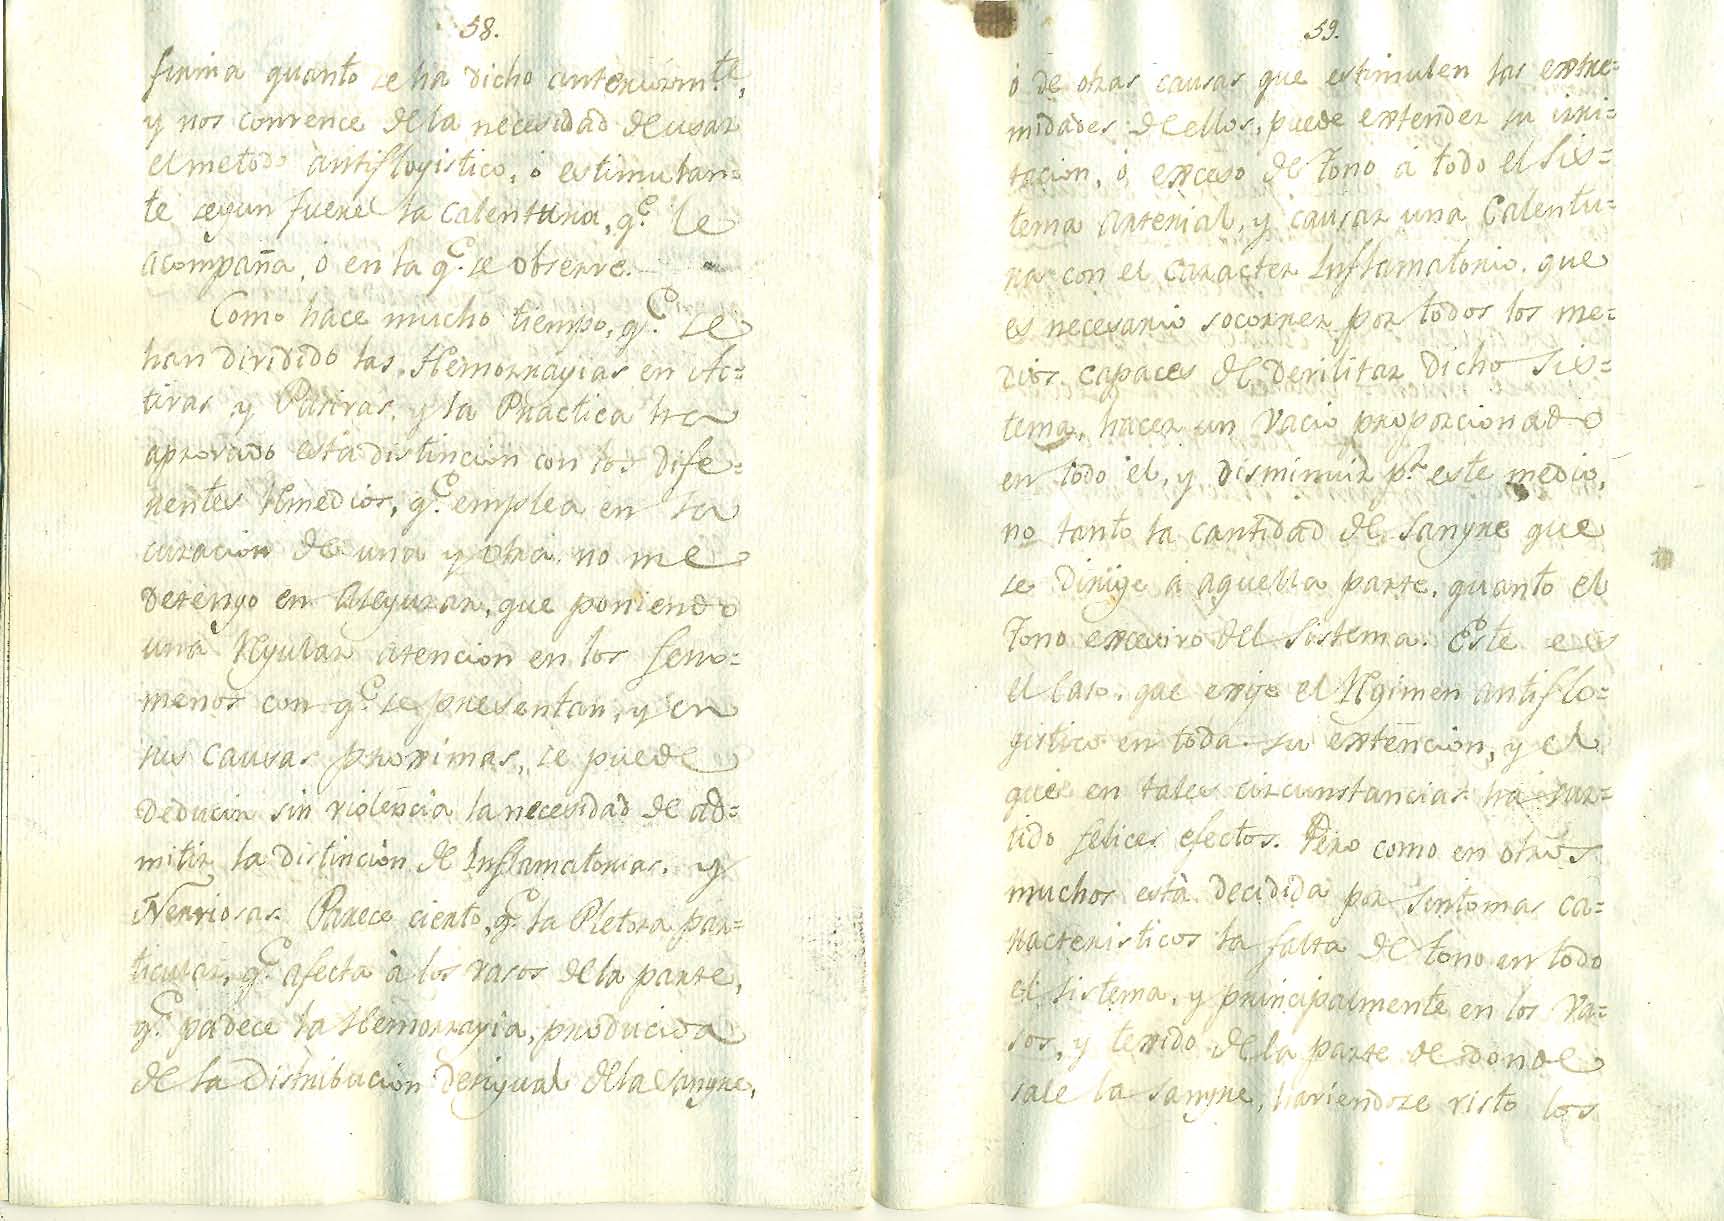 58.
firma quanto se ha dicho anteriormte,
y nos convence de la necesidad de usar
el metodo antiflogistico, ó estimulan=
te segun fuere la calentura, q.e le
acompaña, ó en la q.e se observe.
Como hace mucho tiempo, q.e se
han dividido las Hemorragias en Ac=
tivas y Pasivas, y la Practica ha
aprovado esta distincion con los dife=
rentes Remedios, q.e emplea en la
curacion de una y otra no me
detengo en asegurar, que poniendo
una Regular atencion en los feno=
menos con q.e se presentan, y en
sus causas proximas, se puede
deducir sin violencia la necesidad de ad=
mitir la distincion de Inflamatorias, y
Nerviosas. Parece cierto, q.e la Pletora par=
ticular, q.e afecta à los vasos de la parte,
q.e padece la Hemorragia, producida
de la Distribucion desigual de la sangre,
59.
ó de otras causas que estimulen las extre=
midades de ellos, puede extender su irri=
tacion, ó exceso de Tono á todo el Sis=
tema Arterial, y causar una Calentu=
ra con el caracter Inflamatorio. que
es necesario socorrer por todos los me=
dios capaces de devilitar dicho Sis=
tema, hacer un vacio proporcionado
en todo él, y disminuir p.r este medio,
no tanto la cantidad de Sangre que
se dirige á aquella parte, quanto el
Tono excesivo del sistema. Este es
el caso, que exije el Regimen antiflo=
gistico en toda su extencion, y el
que en tales circunstancias ha sur=
tido felices efectos. Pero como en otros
muchos està decidida por sintomas ca=
racteristicos la falta de tono en todo
el sistema, y principalmente en los Va=
sos, y texido de la parte de donde
sale la sangre, haviendose visto los